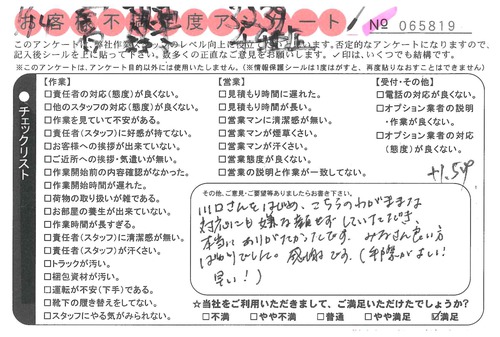 お客様不満足度アンケート
No 065819
このアンケートに、弊社作業スタッフのレベル向上に役立てたいと思います。否定的なアンケートになりますので、
記入後シールを上に貼って下さい。数多くの正直なご意見をお願いします。✓印は、いくつでも結構です。
※このアンケートは、アンケート目的以外には使用いたしません。(※情報保護シールは1度はがすと、再度貼りなおすことはできません)
チェックリスト
【作業】
□責任者の対応(態度)が良くない。
□他のスタッフの対応(態度)が良くない。
□作業を見ていて不安がある。
□責任者(スタッフ)に好感が持てない。
□お客様への挨拶が出来ていない。
□ご近所への挨拶・気遣いが無い。
□作業開始前の内容確認がなかった。
□作業開始時間が遅れた。
□荷物の取り扱いが雑である。
□お部屋の養生が出来ていない。
□作業時間が長すぎる。
□責任者(スタッフ)に清潔感が無い。
□責任者(スタッフ)が汗くさい。
□トラックが汚い。
□梱包資材が汚い。
□運転が不安(下手)である。
□靴下の履き替えをしてない。
□スタッフにやる気がみられない。
【営業】
□見積もり時間に遅れた。
□見積もり時間が長い。
□営業マンに清潔感が無い。
□営業マンが煙草くさい。
□営業マンが汗くさい。
□営業態度が良くない。
□営業の説明と作業が一致してない。
【受付・その他】
□電話の対応が良くない。
□オプション業者の説明
・作業が良くない。
□オプション業者の対応
(態度)が良くない。
その他、ご意見・ご要望等ありましたらお書き下さい。
川口さんをはじめ、こちらのわがままな
対応にも嫌な顔せずしていただき、
本当にありがたかったです。みなさん良い方
ばかりでした。感謝です。(手際がよい!
早い!)
☆当社をご利用いただきまして、ご満足いただけたでしょうか?
□不満 □やや不満 □普通 □やや満足 ☑満足